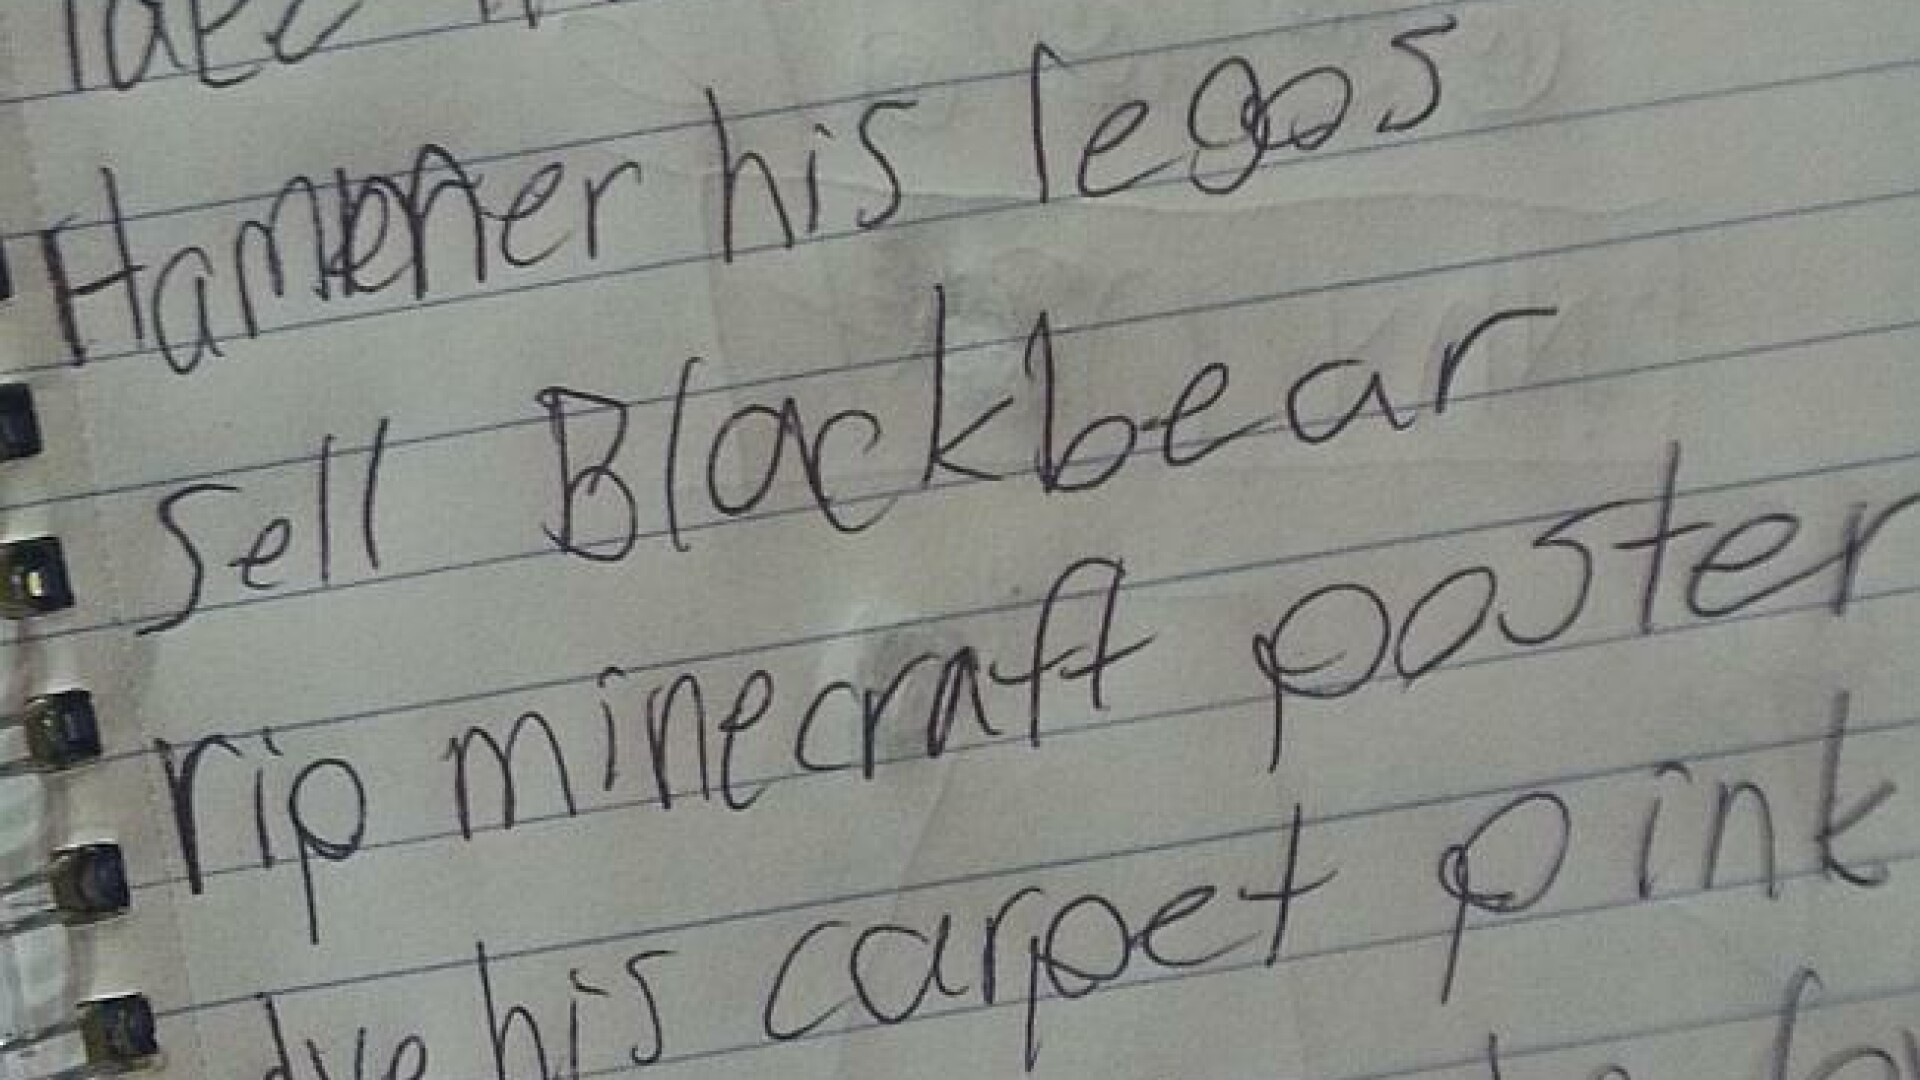 Hammer his legos
Sell Blackbear
rip minecraft poster
dye his carpet pink